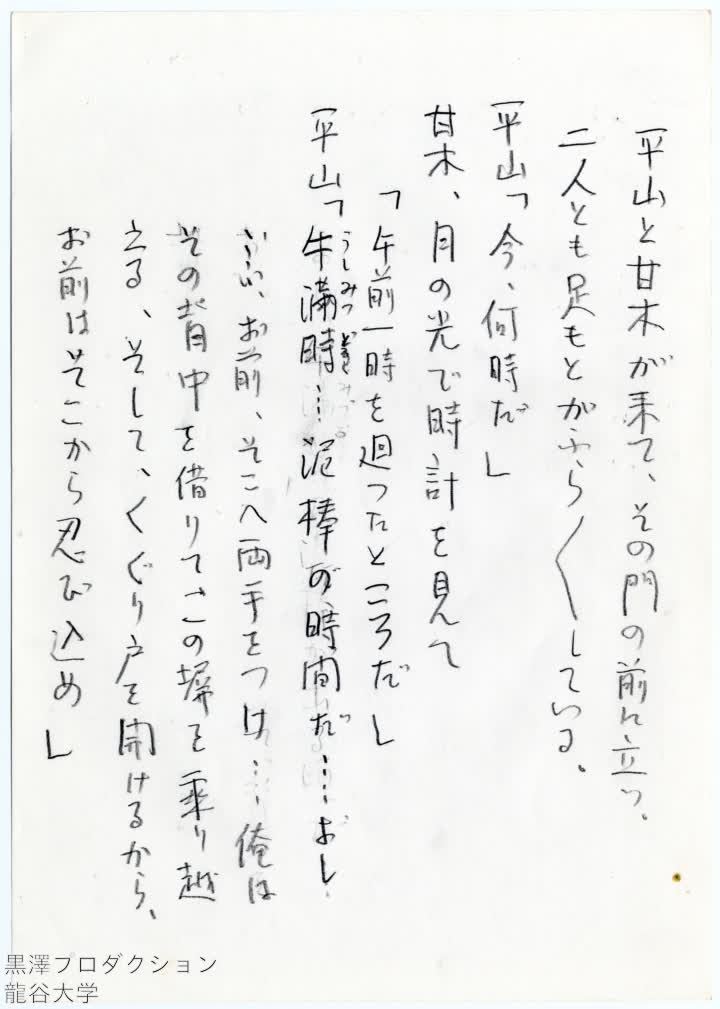 平山と甘木が来て、その門の前に立つ。
二人とも足もとがふら〳〵している。
平山「今、何時だ」
甘木、月の光で時計を見て
「午前一時を廻ったところだ」
平山「牛満時…泥棒の時間だ……おし
うしみつどき
……い、お前、そこへ両手をつけ……俺は
その背中を借りて、この塀を乗り越
える、そして、くぐり戸を開けるから、
お前はそこから忍び込め」
黒澤プロダクション
龍谷大学